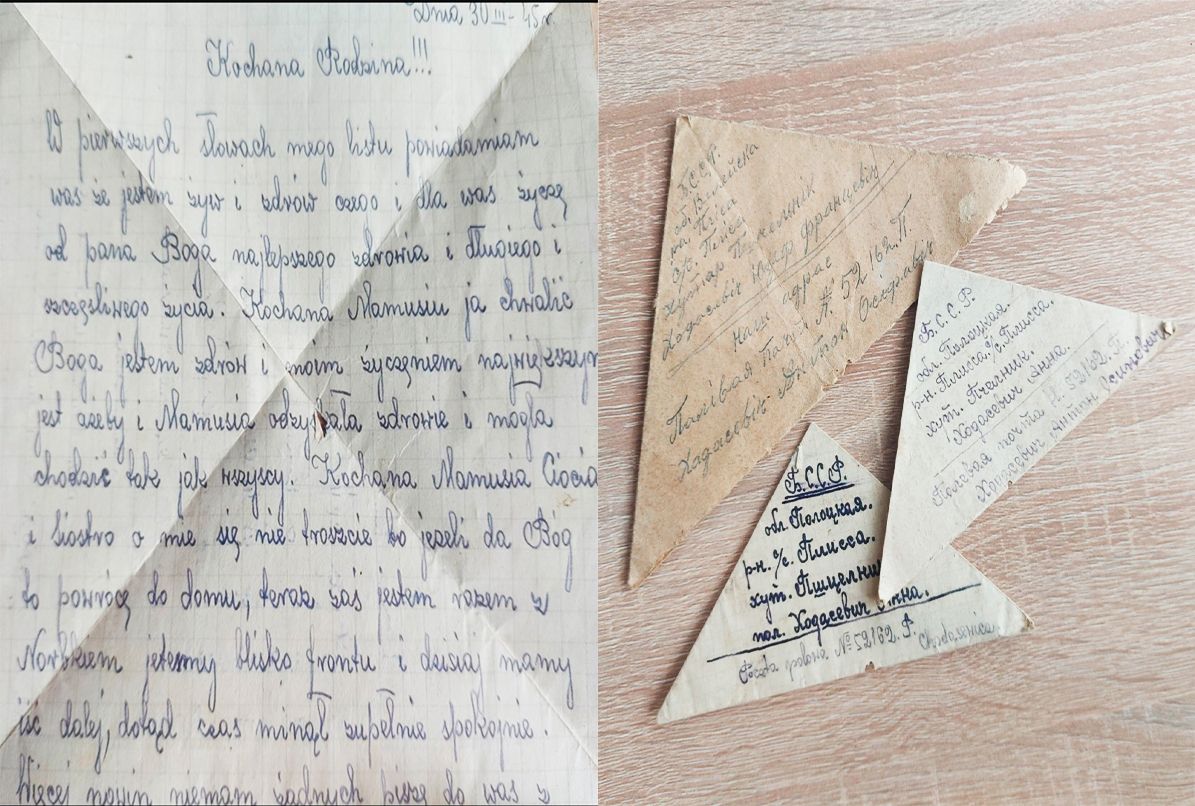 Dnia 30 III - 45 r.
Kochana Rodzina!!!
W pierwszych słowach mego listu powiadamiam
was że jestem żyw i zdrów czego i dla was życzę
od pana Boga najlepszego zdrowia i długiego i
szczęśliwego życia. Kochana Mamusiu ja chwalić
Boga jestem zdrów i moim życzeniem największym
jest ażeby i Mamusia odzyskała zdrowie i mogla
chodzić tak jak wszyscy. Kochana Mamusia Ciocia
i siostro o mie się nie troszcie bo jeżeli da Bóg
to powrócę do domu, teraz zaś jestem razem z
Norbkiem jetesmy blisko frontu i dzisiaj mamy
iść dalej, dotąd czas minął zupełnie spokojnie.
Więcej nowin niemam żadnych piszę do was z
Б.С.С.Р.
об. Вілейска
с/с. Пліса
Хутар
Хадасовіч Юзаф Францевіч
наш адрас
Палівая Почта № 52162. П.
Хадасовіч Антон Осіфавіч
Б.С.С.Р.
обл. Полоцкая.
р-н. Плисса с/с. Плисса.
хут. Пчельник.
Ходасевич Анна.
Полевая почта № 52162. П.
Ходасевич Антон
Б.С.С.Р.
обл. Полоцкая.
р-н. с/с. Плисса.
хут.
пол. Ходасевич Анна.
№ 52162. P.